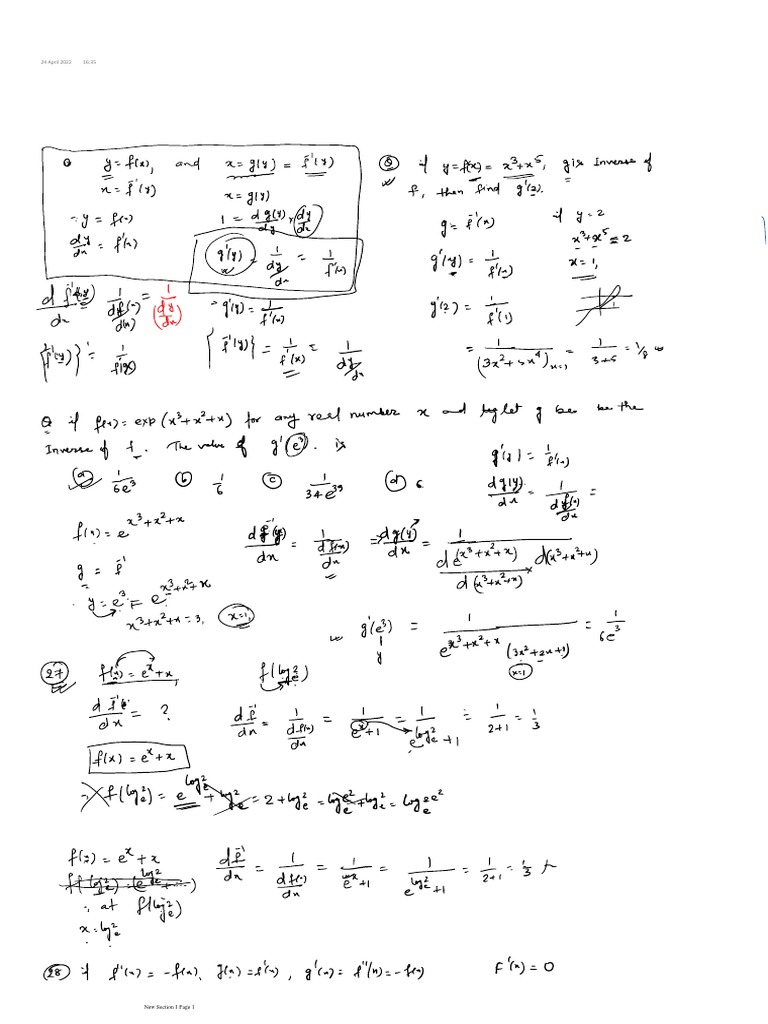 24 April 2022 16:35
y = f(x), and x = g(y) = f⁻¹(y)
x = f⁻¹(y)
x = g(y)
∵ y = f(x)
1 = dg(y)/dy × dy/dx
dy/dx = f'(x)
g'(y) = 1/(dy/dx) = 1/f'(x)
1/(df(x)/d(x)) = 1/(dy/dx)
∴ g'(y) = 1/f'(x)
{f⁻¹(y)}' = 1/f'(x)
{f⁻¹(y)} = 1/f'(x) = 1/(dy/dx)
Q if y = f(x) = x³+x⁵, g is Inverse of
f, then find g'(2).
g = f⁻¹(x)
if y = 2
x³+x⁵ = 2
g'(y) = 1/f'(x)
x = 1,
g'(2) = 1/f'(1)
= 1/(3x²+5x⁴)ₓ₌₁ = 1/(3+5) = 1/8
Q if f(x) = exp(x³+x²+x) for any real number x and let g be the
Inverse of f. The value of g'(e³). is
(a) 1/6e³ (b) 1/6 (c) 1/34e³⁹ (d) 6
g'(y) = 1/f'(x)
dg(y)/dx = 1/(df(x)/dx) =
f(x) = e^(x³+x²+x)
df⁻¹(y)/dx = 1/(df(x)/dx) = dg(y)/dx = 1/(de^(x³+x²+x)/d(x³+x²+x) × d(x³+x²+x))
g = f⁻¹
y = e³ = e^(x³+x²+x)
x³+x²+x = 3, x=1,
g'(e³) = 1/(e^(x³+x²+x) (3x²+2x+1)) = 1/6e³
y
x=1
(27) f(x) = eˣ+x, f(logₑ2)
df⁻¹/dx = ?
df⁻¹/dx = 1/(df(x)/dx) = 1/(eˣ+1) = 1/(e^(logₑ2)+1) = 1/(2+1) = 1/3
f(x) = eˣ+x
f(logₑ2) = e^(logₑ2) + logₑ2 = 2+logₑ2 = logₑe²+logₑ2 = logₑ2e²
f(x) = eˣ+x
df⁻¹/dx = 1/(df(x)/dx) = 1/(eˣ+1) = 1/(e^(logₑ2)+1) = 1/(2+1) = 1/3
∴ at f(logₑ2)
x = logₑ2
(28) if f''(x) = -f(x), g(x) = f'(x), g'(x) = f''(x) = -f(x) F'(x) = 0
New Section 1 Page 1